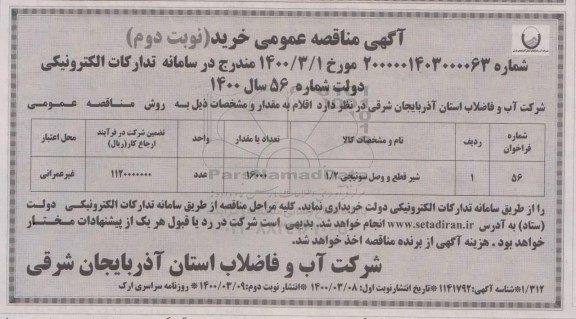 آگهی مناقصه عمومی خرید(نوبت دوم)
شماره ۲۰۰۰۰۰۱۴۰۳۰۰۰۰۶۳ مورخ ۱۴۰۰/۳/۱ مندرج در سامانه تدارکات الکترونیکی
دولت شماره ۵۶ سال ۱۴۰۰
شرکت آب و فاضلاب استان آذربایجان شرقی در نظر دارد اقلام به مقدار و مشخصات ذیل به روش مناقصه عمومی
شماره فراخوان ردیف نام و مشخصات کالا تعداد یا مقدار واحد تضمین شرکت در فرآیند ارجاع کار(ریال) محل اعتبار
۵۶ ۱ شیر قطع و وصل سوئیچی ۱/۲ ۱۶۰۰۰ عدد ۱۱۲۰۰۰۰۰۰۰ غیرعمرانی
را از طریق سامانه تدارکات الکترونیکی دولت خریداری نماید. کلیه مراحل مناقصه از طریق سامانه تدارکات الکترونیکی دولت
(ستاد) به آدرس www.setadiran.ir انجام خواهد شد. بدیهی است شرکت در رد یا قبول هر یک از پیشنهادات مختار
خواهد بود . هزینه آگهی از برنده مناقصه اخذ خواهد شد.
شرکت آب و فاضلاب استان آذربایجان شرقی
۱/۳۱۲*شناسه آگهی:۱۱۴۱۷۹۲ *تاریخ انتشارنوبت اول: ۱۴۰۰/۰۳/۰۸ *انتشار نوبت دوم:۱۴۰۰/۰۳/۰۹ * روزنامه سراسری ارک